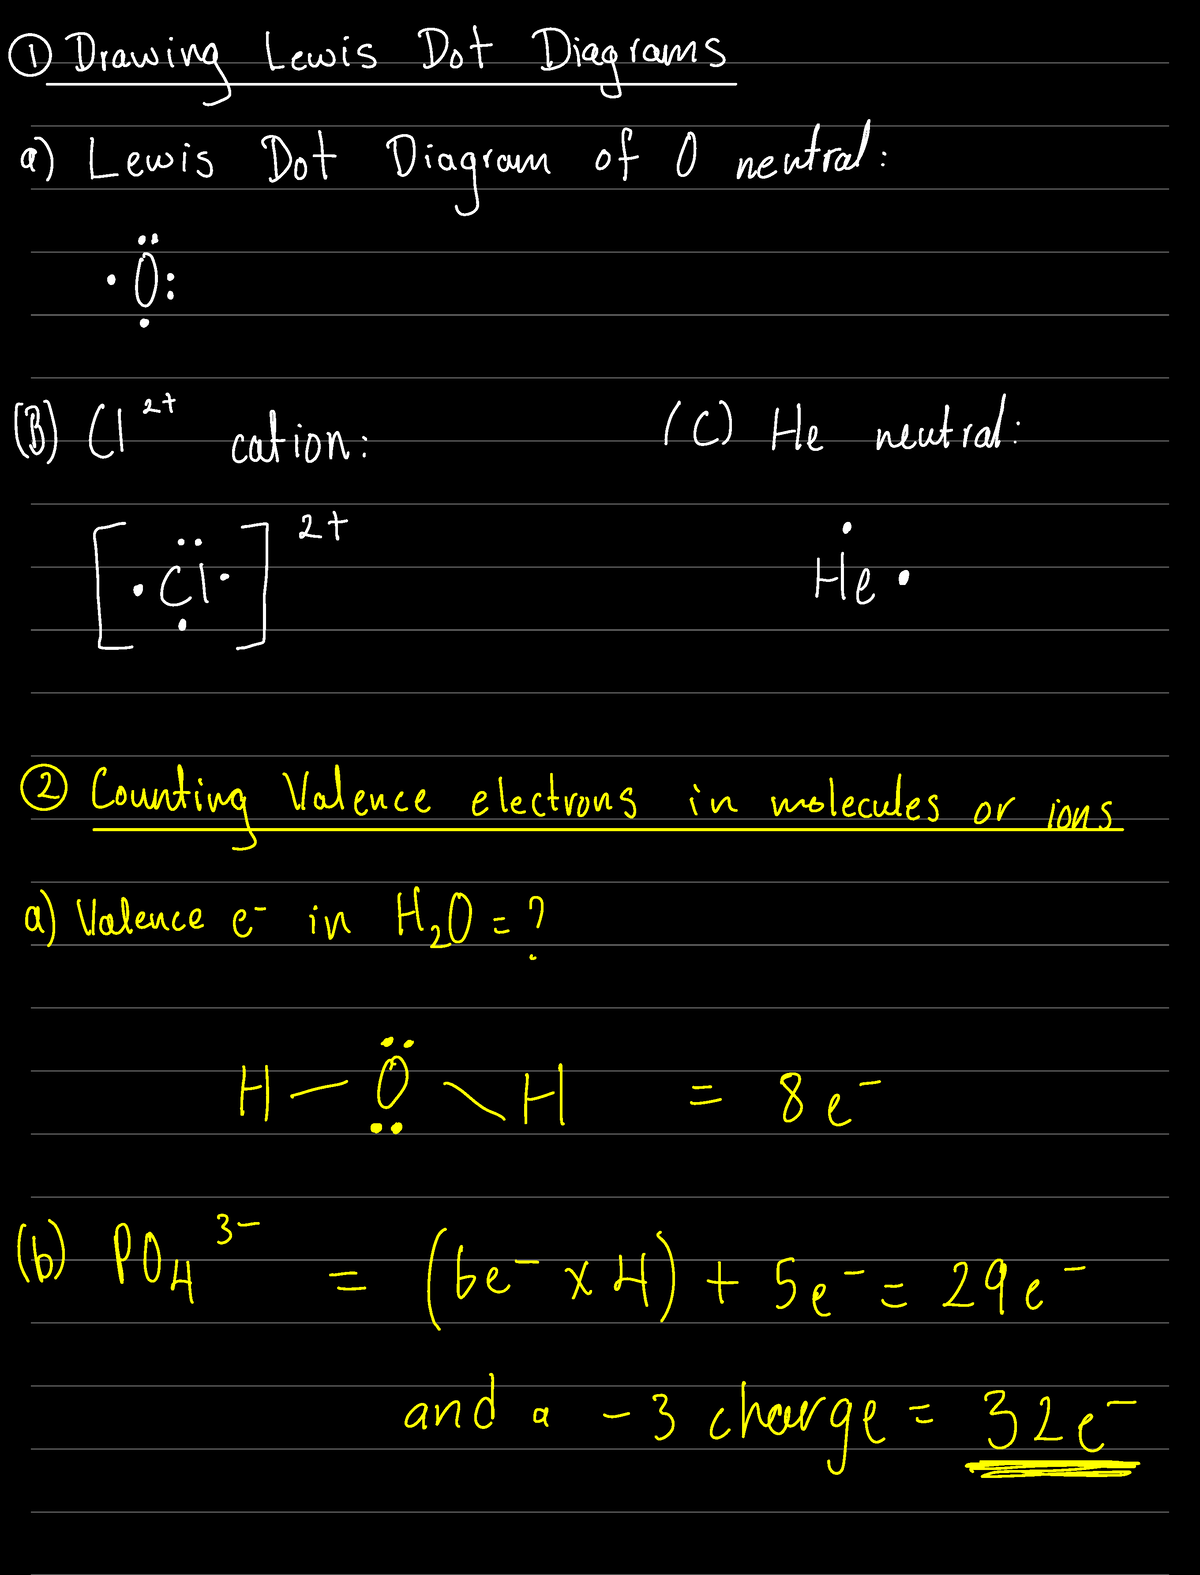 ① Drawing Lewis Dot Diagrams
a) Lewis Dot Diagram of O neutral:
·Ö:
(B) Cl²⁺ cation: (C) He neutral:
[·Cl·]²⁺ He·
② Counting Valence electrons in molecules or ions
a) Valence e⁻ in H₂O = ?
H – Ö \ H = 8e⁻
(b) PO₄³⁻ = (6e⁻ x 4) + 5e⁻ = 29e⁻
and a -3 charge = 32e⁻